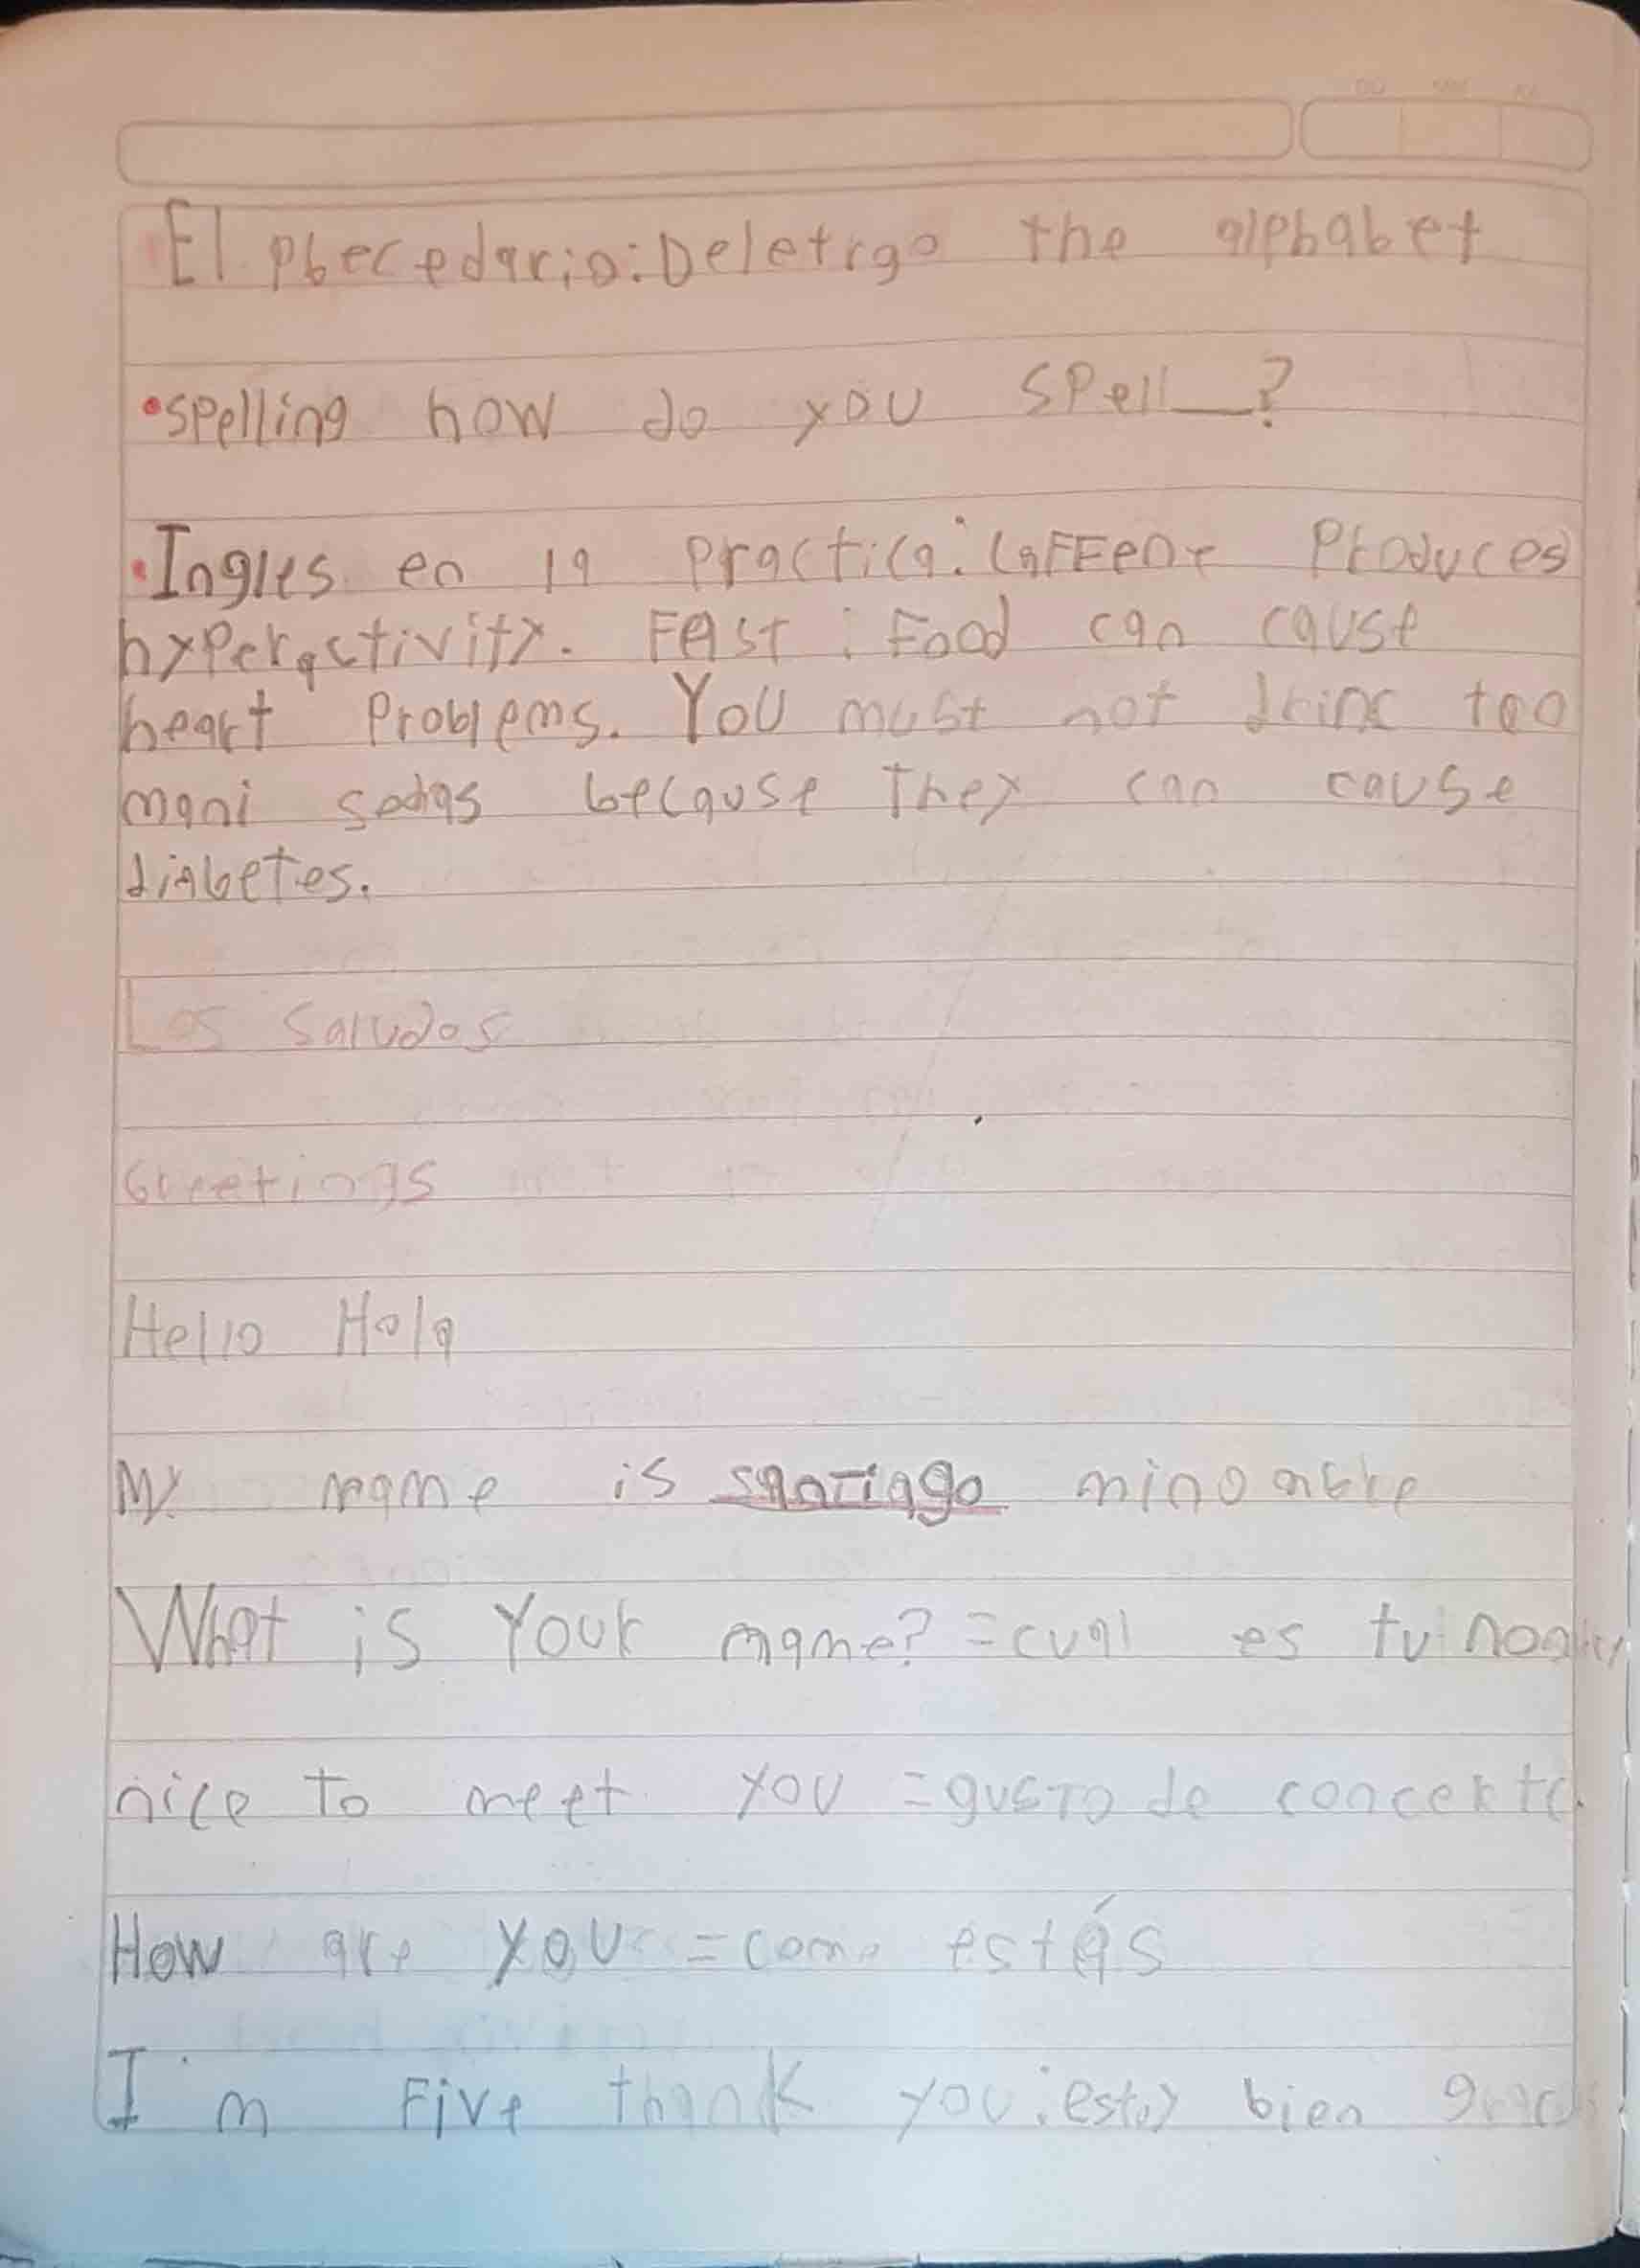 El Pbecedario: Deletrgo the alphabet
•spelling how do you spell__?
•Ingles en la practica: Caffeene Produces
hyperactivity. FEAST : Food can cause
heart Problems. You must not drinc too
mani sodas because They can cause
diabetes.
Los Saludos
Greetings
Hello Hola
My name is santiago mi nombre
What is Your name? = cual es tu
nice to meet you = gusto de concerte.
How are you = como estás
I'm Five thank you: estoy bien